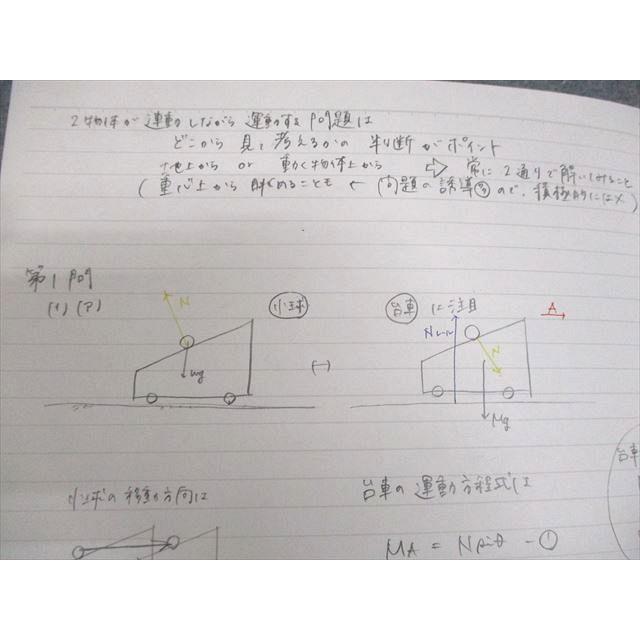 2物体が連動しながら運動する問題は
どこから見て考えるかの判断がポイント
地上から or 動く物体上から ⇨ 常に2通りで解いてみること
(重心上から眺めることも ← 問題の誘導 ので、積極的には×)
第1問
(1) (ア) N 小球 台車 に注目 A
Nレール N
mg (一)
Mg
台車
小球の移動方向は 台車の運動方程式は
MA = N sinθ - ①